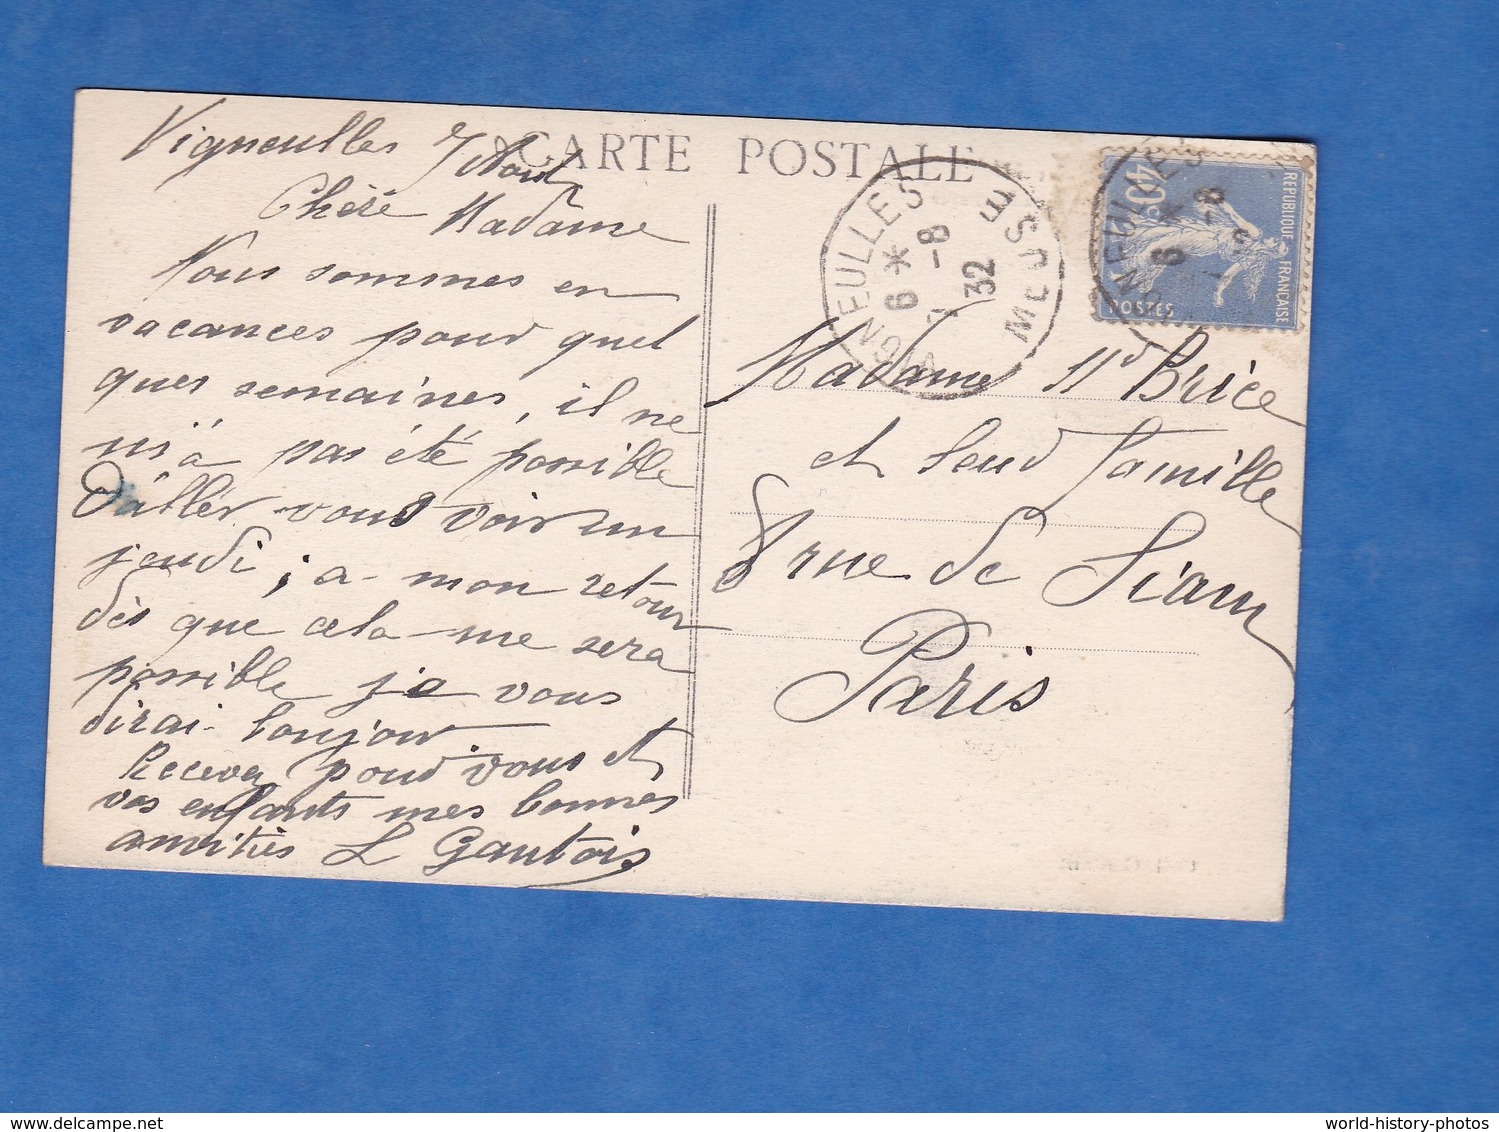 CARTE POSTALE
Vigneulles 7 Aout
Chère Madame
Nous sommes en
vacances pour quel
ques semaines, il ne
m'a pas été possible
d'aller vous voir un
jeudi, a mon retour
dès que cela me sera
possible je vous
dirai bonjour.
Recevez pour vous et
vos enfants mes bonnes
amitiés L Gautois
VIGNEULLES
MEUSE
6 *
-8
32
REPUBLIQUE FRANÇAISE
40c
POSTES
Madame Brice
et Leur famille
8 rue de Siam
Paris
world-history-photos